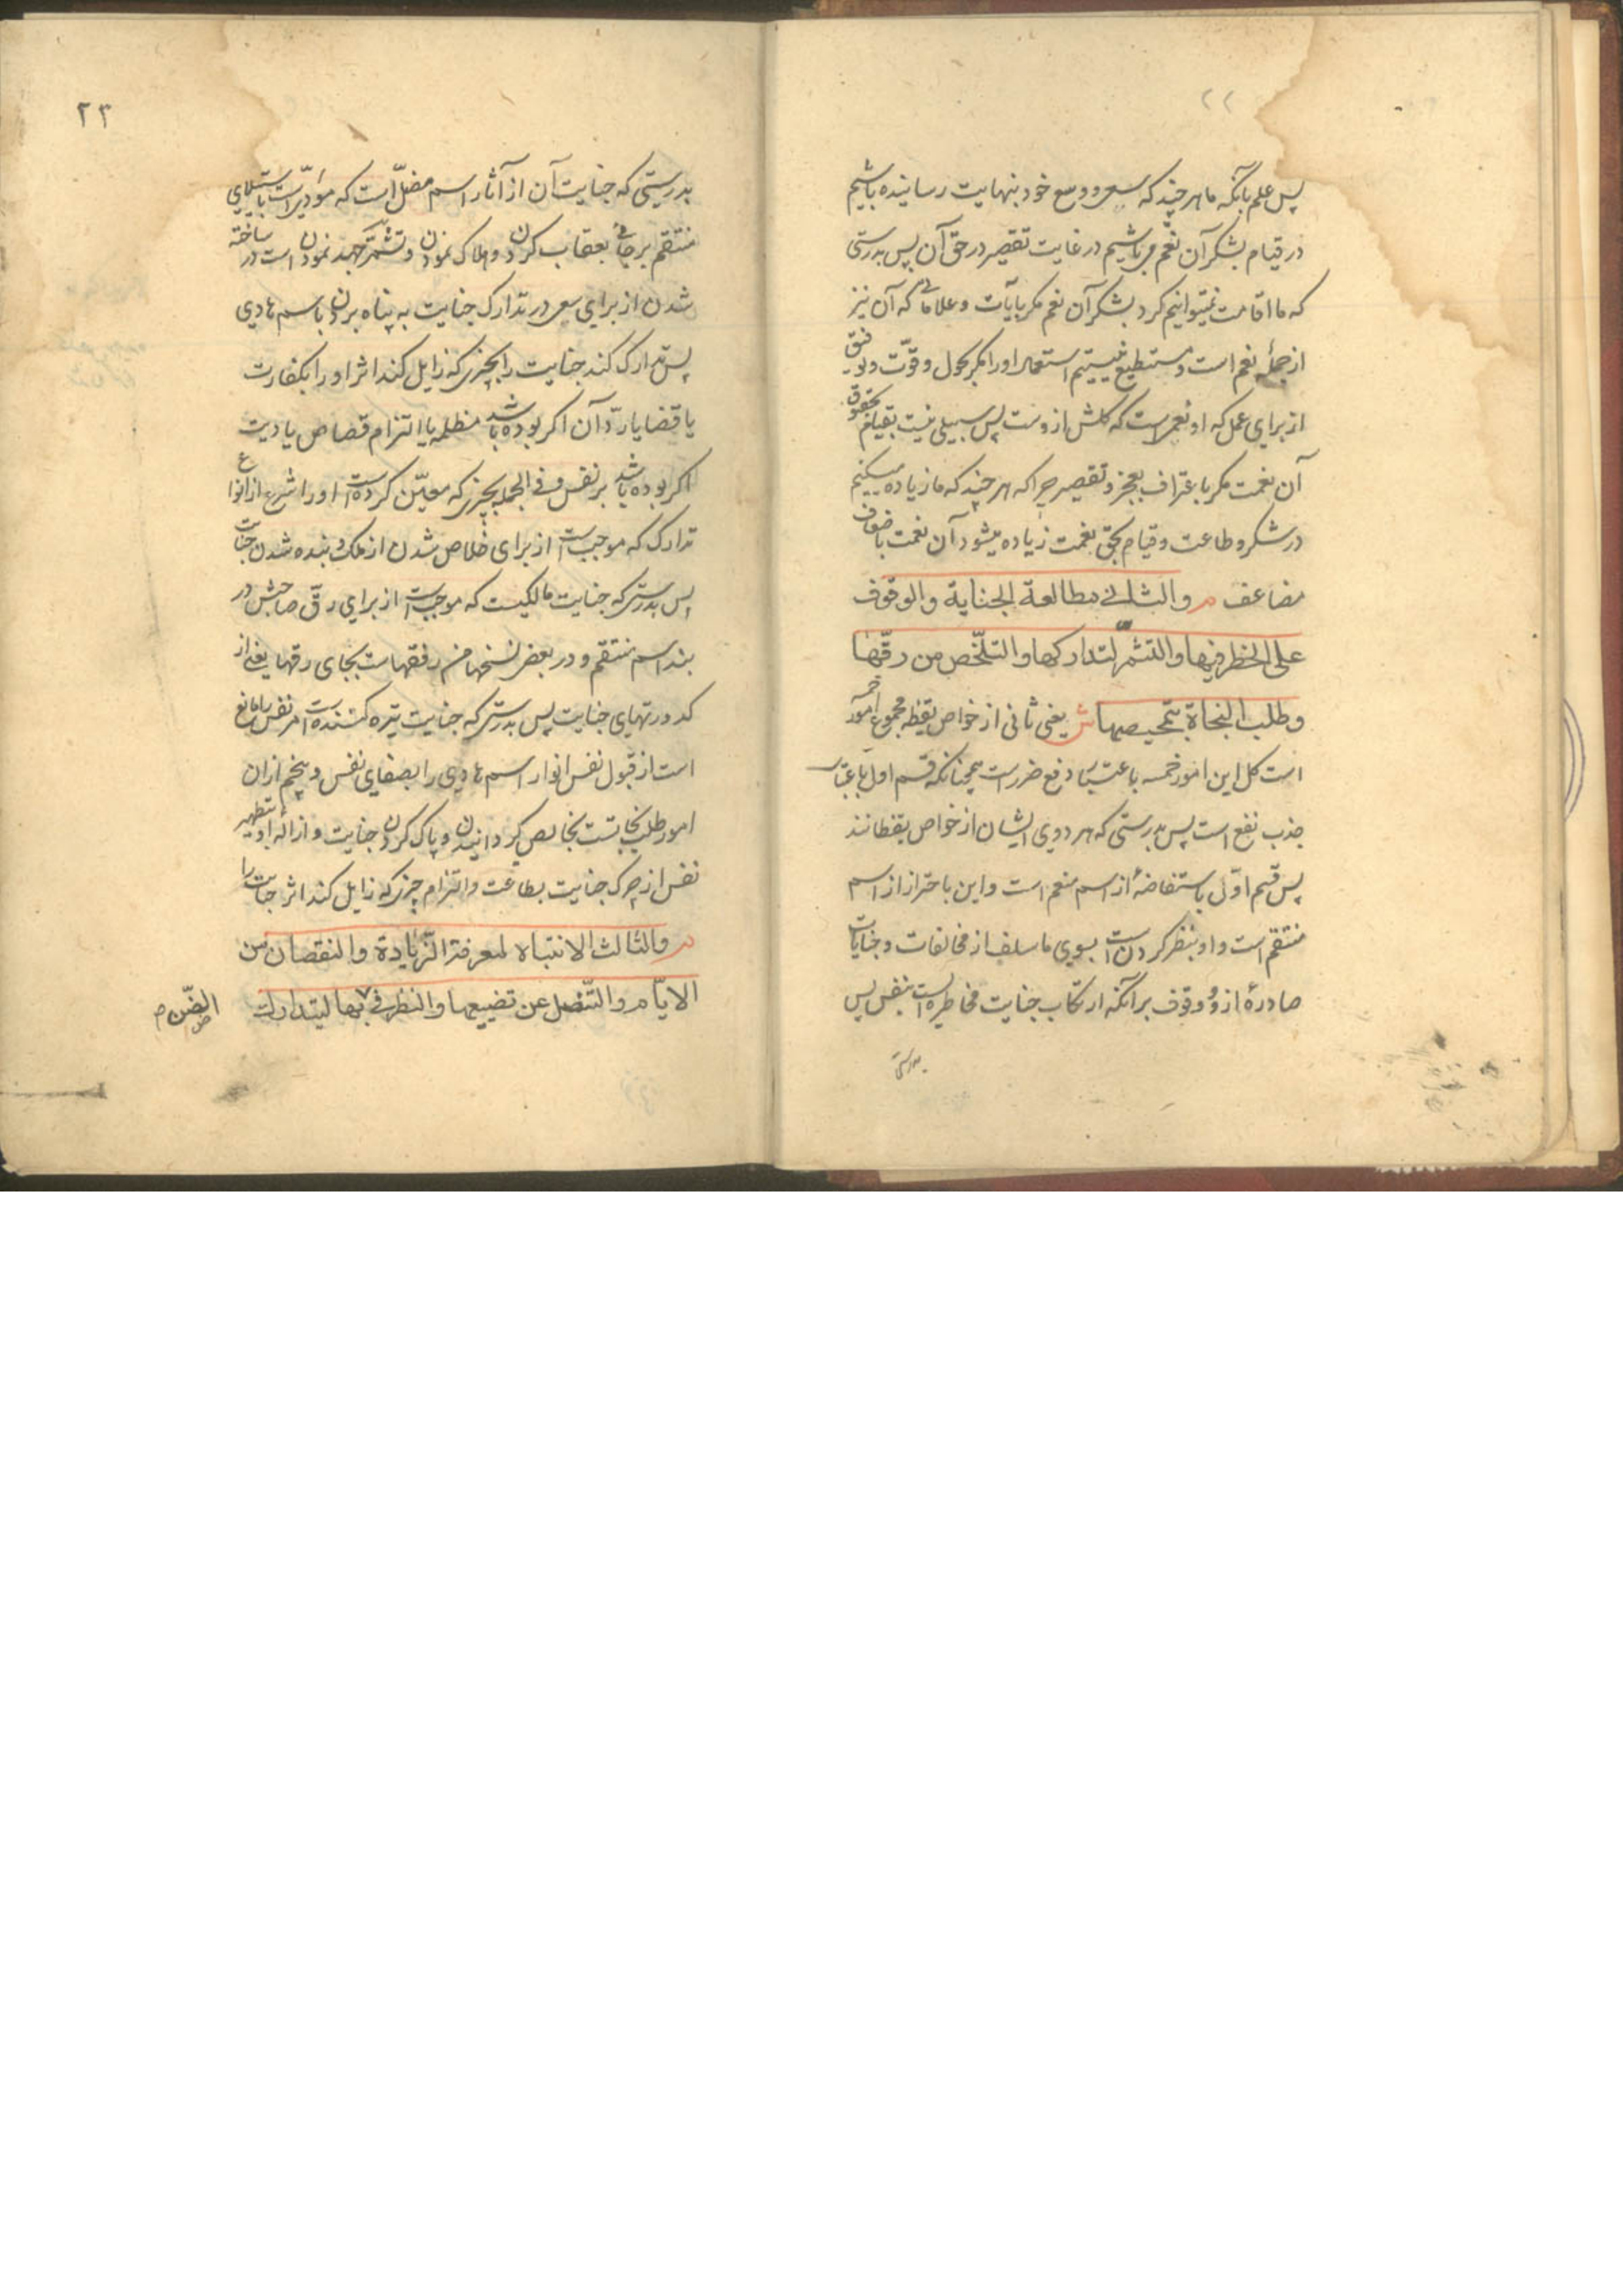 ۲۲
پس علم بآنکه ما هر چند که سعی و وسع خود بنهایت رسانیده باشیم
در قیام بشکر آن نعم می باشیم در غایت تقصیر در حق آن پس بدرستی
که ما اقامت نمیتوانیم کرد بشکر آن نعم مکر بآیات و علاماتی که آن نیز
از جملهٔ نعم است و مستطیع نیستیم استعمال اورا مکر بحول و قوّت و توفیق
از برای عمل که او نعمیست که کلش ازوست پس سبیلی نیست بقیام بحقوق
آن نعمت مکر باعتراف بعجز و تقصیر چرا که هر چند که ما زیاده میکنیم
در شکر و طاعت و قیام بحق نعمت زیاده میشود آن نعمت باضعاف
مضاعف م والثانی مطالعة الجنایة والوقوف
علی الخطر فیها والتشمّر لتدارکها والتلّخص من رقّها
وطلب النجاة بتمحیصها ش یعنی ثانی از خواص یقظه مجموع امور خمسه
است کل این امور خمسه باعتبار دفع ضررست همچنانکه قسم اول باعتبار
جذب نفع است پس بدرستی که هر دوی ایشان از خواص یقظانند
پس قسم اوّلی باستفاضهٔ از اسم منعم است و این باحتراز از اسم
منتقم است و او بنظر کردن است بسوی ما سلف از مخالفات و جنایات
صادرهٔ ازو و وقوف برآنکه ارتکاب جنایت مخاطره است بنفس پس
بدرستی
۲۳
بدرستی که جنایت آن از آثار اسم مضلّ است که مؤدّیست باستیلای
منتقم بر جانی بعقاب کردن و هلاک نمودن و تشمّر جهد نمودن است در ساخته
شدن از برای سعی در تدارک جنایت به پناه بردن باسم هادی
پس تدارک کند جنایت را بچیزی که زایل کند اثر او را بکفارت
یا قضا یا ردّ آن اکر بوده باشد مظلمه یا التزام قصاص یا دیت
اکر بوده باشد بر نفس و فی الجمله بچیزی که معیّن کرده است او را شرع از انواع
تدارک که موجب است از برای خلاص شدن از ملک و بنده شدن جنایت
پس بدرستی که جنایت مالکیست که موجب است از برای رقّ صاحبش در
بند اسم منتقم و در بعض نسخها من رفقهاست بجای رقها یعنی از
کدورتهای جنایت پس بدرستی که جنایت تیره کننده است مر نفس را و مانع
است از قبول نفس انوار اسم هادی را بصفای نفس و پنجم ازان
امور طلب نجاتست بخالص کردانیدن و پاک کردن جنایت و ازالهٔ او بتطهیر
نفس از چرک جنایت بطاعت و التزام چیزی که زایل کند اثر جنایت را
م والثالث الانتباه لمعرفة الزّیادة والنقصان من
الایّام والتّنصل عن تضییعها والنظر فی بها لیتدارک
الضّن